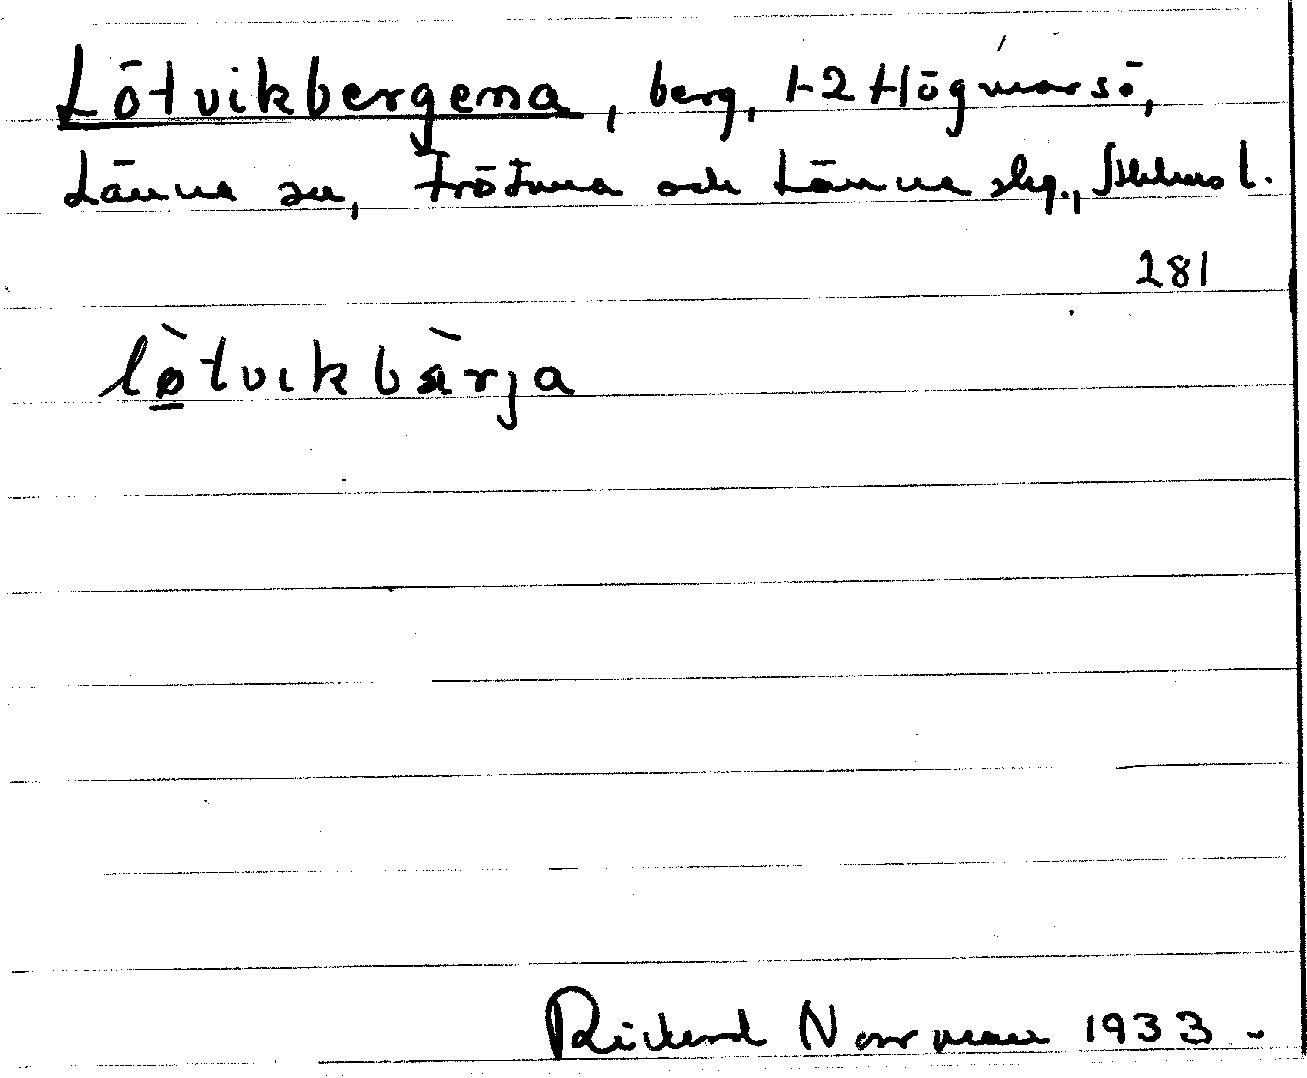 Lötvikbergena, berg, 1-2 Högmarsö,
Länna sn, Frötuna och Länna skg., Sthlms l.
281
lò̱tvikbàrja
Rickard Norrman 1933